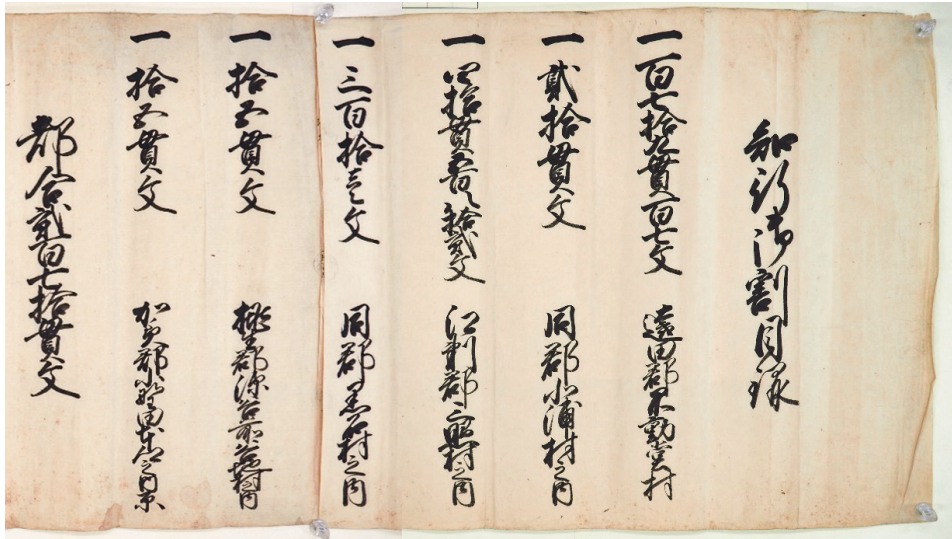 知行御割目録
一百七拾九貫百七文 遠田郡不動堂村
一貳拾貫文 同郡北浦村之内
一四拾貫五百八拾貳文 江刺郡 村之内
一三百拾壱文 同郡黒石村之内
一拾五貫文 桃生郡深谷前谷地村内
一拾五貫文 加美郡小野田本郷之内
都合貳百七拾貫文